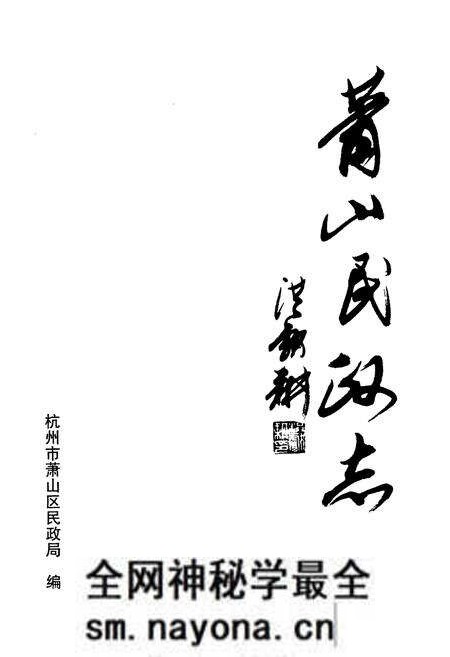 萧山民政志
洪
杭州市萧山区民政局 编
全网神秘学最全
sm.nayona.cn